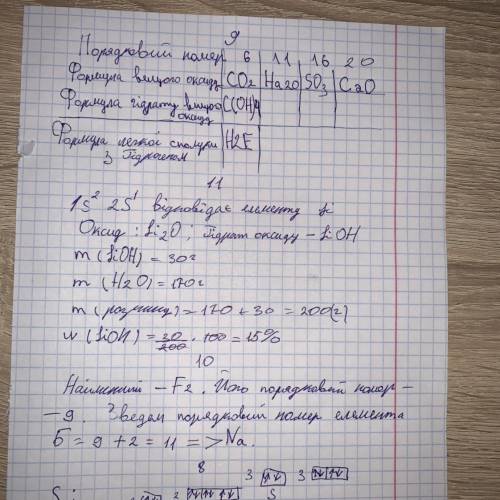 9
Порядковий номер 6 11 16 20
Формула вищого оксиду CO2 Na2O SO3 CaO
Формула гідрату вищого C(OH)4
оксиду
Формула леткої сполуки H2E
з Гідрогеном
11
1s² 2s¹ відповідає елементу Li
Оксид : Li2O ; Гідрат оксиду – LiOH
m (LiOH) = 30г
m (H2O) = 170г
m (розчину) = 170 + 30 = 200(г)
w (LiOH) = 30/200 · 100 = 15%
10
– F2. Його порядковий номер –
– 9. Звідси порядковий номер елемента
Б = 9 + 2 = 11 => Na.
8
3 ↑↓ 3 ↑↓ ↑↓